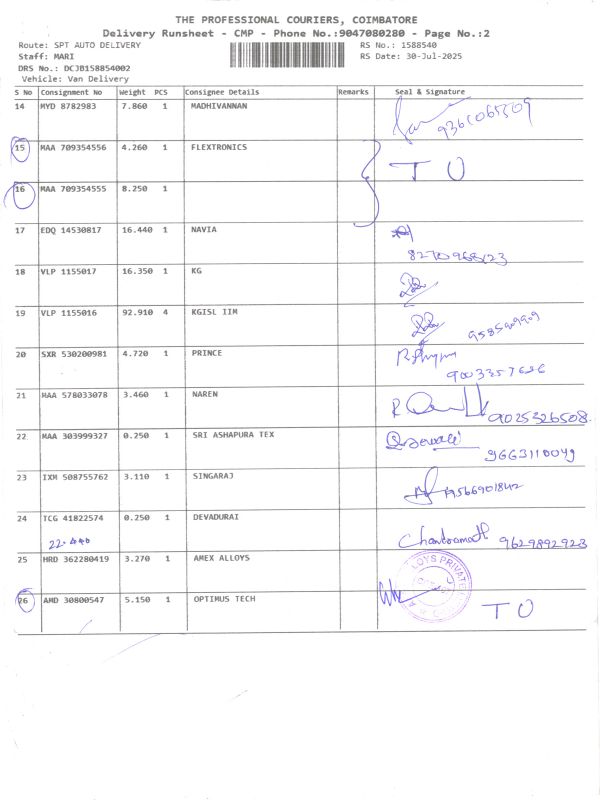 THE PROFESSIONAL COURIERS, COIMBATORE
Delivery Runsheet - CMP - Phone No.:9047080280 - Page No.:2
Route: SPT AUTO DELIVERY RS No.: 1588540
Staff: MARI RS Date: 30-Jul-2025
DRS No.: DCJB158854002
Vehicle: Van Delivery
S No Consignment No Weight PCS Consignee Details Remarks Seal & Signature
14 MYD 8782983 7.860 1 MADHIVANNAN 9361065509
15 MAA 709354556 4.260 1 FLEXTRONICS T U
16 MAA 709354555 8.250 1
17 EDQ 14530817 16.440 1 NAVIA
8270968123
18 VLP 1155017 16.350 1 KG
19 VLP 1155016 92.910 4 KGISL IIM
20 SXR 530200981 4.720 1 PRINCE
9003357626
21 MAA 578033078 3.460 1 NAREN
9025326508
22 MAA 303999327 0.250 1 SRI ASHAPURA TEX
9663110049
23 IXM 508755762 3.110 1 SINGARAJ
24 TCG 41822574 0.250 1 DEVADURAI
22.440 9629892923
25 HRD 362280419 3.270 1 AMEX ALLOYS
26 AMD 30800547 5.150 1 OPTIMUS TECH T U